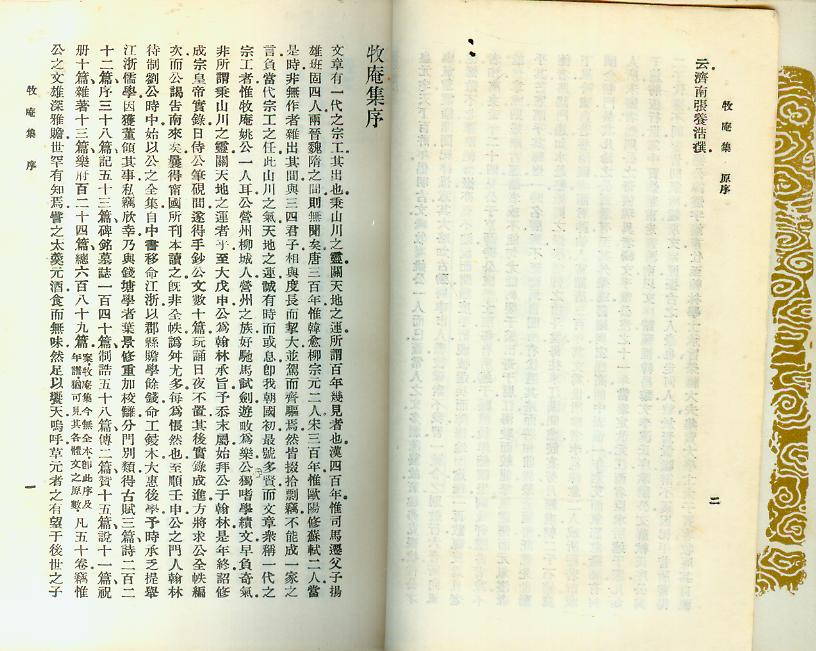 牧庵集 原序
云濟南張養浩撰。
二
牧庵集序
文章有一代之宗工其出也秉山川之靈關天地之運所謂百年幾見者也漢四百年惟司馬遷父子揚
雄班固四人兩晉魏隋之間則無聞矣唐三百年惟韓愈柳宗元二人宋三百年惟歐陽修蘇軾二人當
是時非無作者雜出其間與三四君子相與度長而挈大並駕而齊驅焉然皆掇拾剽竊不能成一家之
言負當代宗工之任此山川之氣天地之運誠有時而或息卽我朝國初最號多賢而文章衆稱一代之
宗工者惟牧庵姚公一人耳公營州柳城人營州之族好馳馬試劍遊畋爲樂公獨嗜學績文早負奇氣
非所謂秉山川之靈關天地之運者乎至大戊申公爲翰林承旨予忝末屬始拜公于翰林是年終詔修
成宗皇帝實錄日侍公筆硯間遂得手鈔公文數十篇玩誦日夜不置其後實錄成進方將求公全帙編
次而公謁告南來矣曩得甯國所刊本讀之旣非全帙譌舛尤多每爲悵然也至順壬申公之門人翰林
待制劉公時中始以公之全集自中書移命江浙以郡縣贍學餘錢命工鋟木大惠後學予時承乏提舉
江浙儒學因獲董領其事私竊欣幸乃與錢塘學者葉景修重加校讐分門別類得古賦三篇詩二百二
十二篇序三十八篇記五十三篇碑銘墓誌一百四十篇制誥五十八篇傳二篇贊十五篇說十一篇祝
册十篇雜著十三篇樂府百二十四篇總六百八十九篇案牧庵集今無全本卽此序及年譜猶可見其各體文之原數凡五十卷竊惟
公之文雄深雅贍世罕有知焉譬之太羹元酒食而無味然足以饗天嗚呼草元者之有望于後世之子
牧庵集 序
一